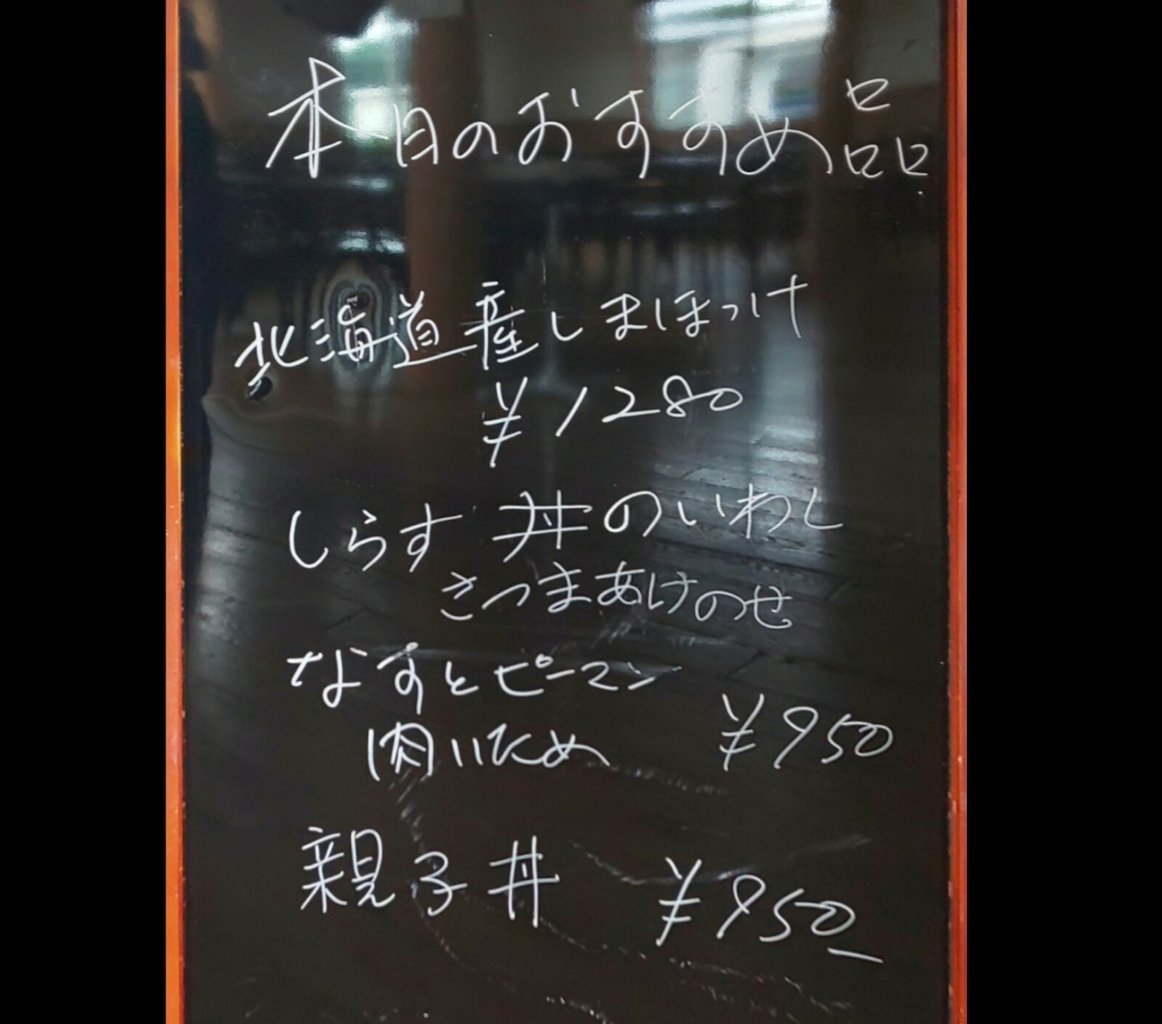 本日のおすすめ品
北海道産しまほっけ
¥1280
しらす丼のいわし
さつまあげのせ
なすとピーマン
肉いため ¥950
親子丼 ¥950